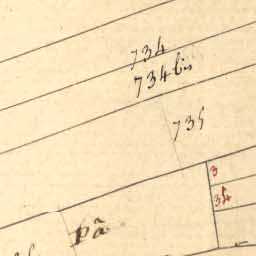 734
734 bis
735
3
34
pã